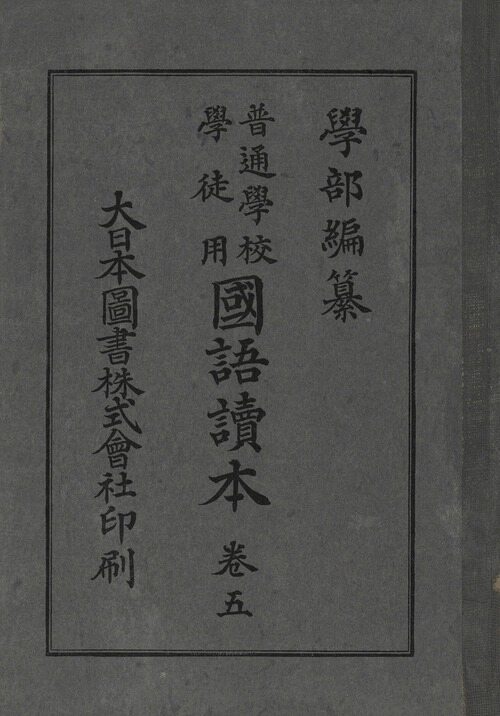 學部編纂
普通學校
學徒用
國語讀本 卷五
大日本圖書株式會社印刷